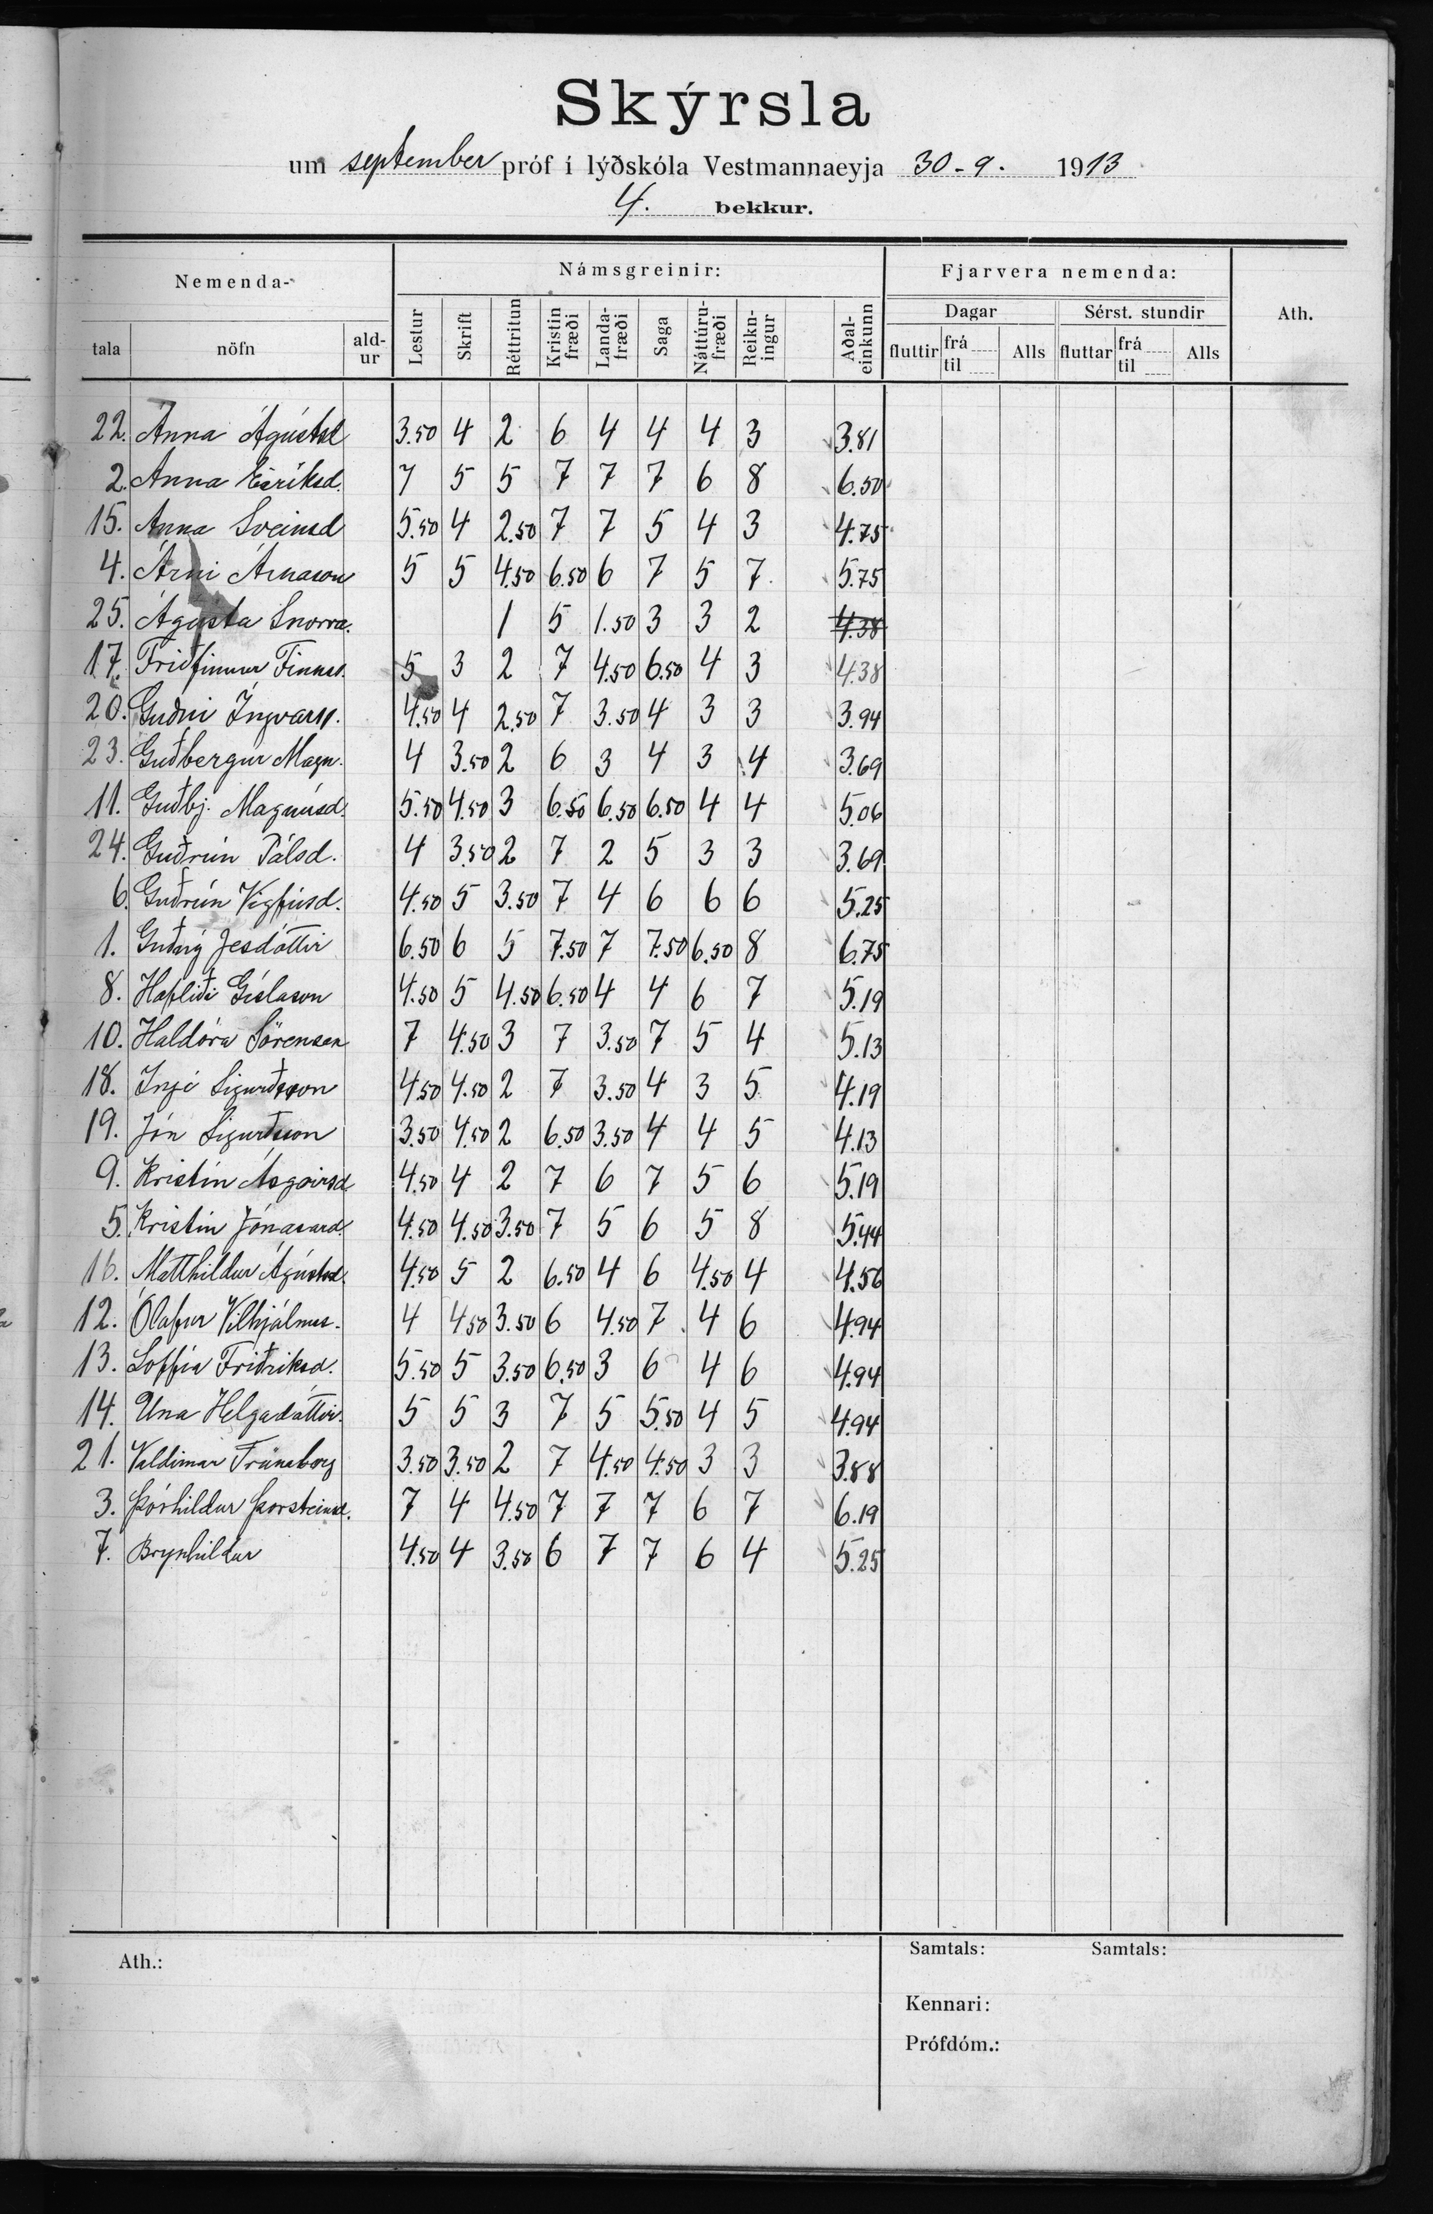 Skýrsla
um september próf í lýðskóla Vestmannaeyja 30-9. 1913
4. bekkur.
Nemenda- Námsgreinir: Fjarvera nemenda: Ath.
Dagar Sérst. stundir
tala nöfn ald-ur Lestur Skrift Réttritun Kristin fræði Landa-fræði Saga Náttúru-fræði Reikn-ingur Aðal-einkunn fluttir frá til Alls fluttar frá til Alls
22. Anna Ágústsd 3.50 4 2 6 4 4 4 3 3.81
2. Anna Eiríksd. 7 5 5 7 7 7 6 8 6.50
15. Anna Sveinsd 5.50 4 2.50 7 7 5 4 3 4.75
4. Árni Árnason 5 5 4.50 6.50 6 7 5 7. 5.75
25. Ágústa Snorra. 1 5 1.50 3 3 2 4.38
17. Friðfinnur Finnss. 5 3 2 7 4.50 6.50 4 3 4.38
20. Guðni Ingvarss. 4.50 4 2.50 7 3.50 4 3 3 3.94
23. Guðbergur Magn. 4 3.50 2 6 3 4 3 4 3.69
11. Guðbj. Magnúsd. 5.50 4.50 3 6.50 6.50 6.50 4 4 5.06
24. Guðrún Pálsd. 4 3.50 2 7 2 5 3 3 3.69
6. Guðrún Vigfúsd. 4.50 5 3.50 7 4 6 6 6 5.25
1. Guðný Jesdóttir 6.50 6 5 7.50 7 7.50 6.50 8 6.75
8. Hafliði Gíslason 4.50 5 4.50 6.50 4 4 6 7 5.19
10. Haldóra Sörensen 7 4.50 3 7 3.50 7 5 4 5.13
18. Ingi Sigurðsson 4.50 4.50 2 7 3.50 4 3 5 4.19
19. Jón Sigurðsson 3.50 4.50 2 6.50 3.50 4 4 5 4.13
9. Kristín Ásgeirsd 4.50 4 2 7 6 7 5 6 5.19
5. Kristín Jónasard. 4.50 4.50 3.50 7 5 6 5 8 5.44
16. Matthildur Ágústsd. 4.50 5 2 6.50 4 6 4.50 4 4.56
12. Ólafur Vilhjálmss. 4 4.50 3.50 6 4.50 7 4 6 4.94
13. Soffía Friðriksd. 5.50 5 3.50 6.50 3 6 4 6 4.94
14. Una Helgadóttir. 5 5 3 7 5 5.50 4 5 4.94
21. Valdimar Tranaberg 3.50 3.50 2 7 4.50 4.50 3 3 3.88
3. Þórhildur Þorsteinsd. 7 4 4.50 7 7 7 6 7 6.19
7. Brynhildur 4.50 4 3.50 6 7 7 6 4 5.25
Ath.: Samtals: Samtals:
Kennari:
Prófdóm.: